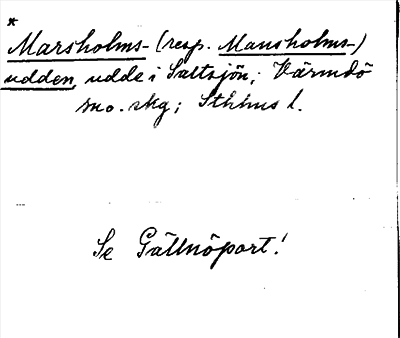 *
Marsholms- (resp. Mansholms-)
udden, udde i Saltsjön; Värmdö
sno. skg; Sthlms l.
Se Gällnöport!